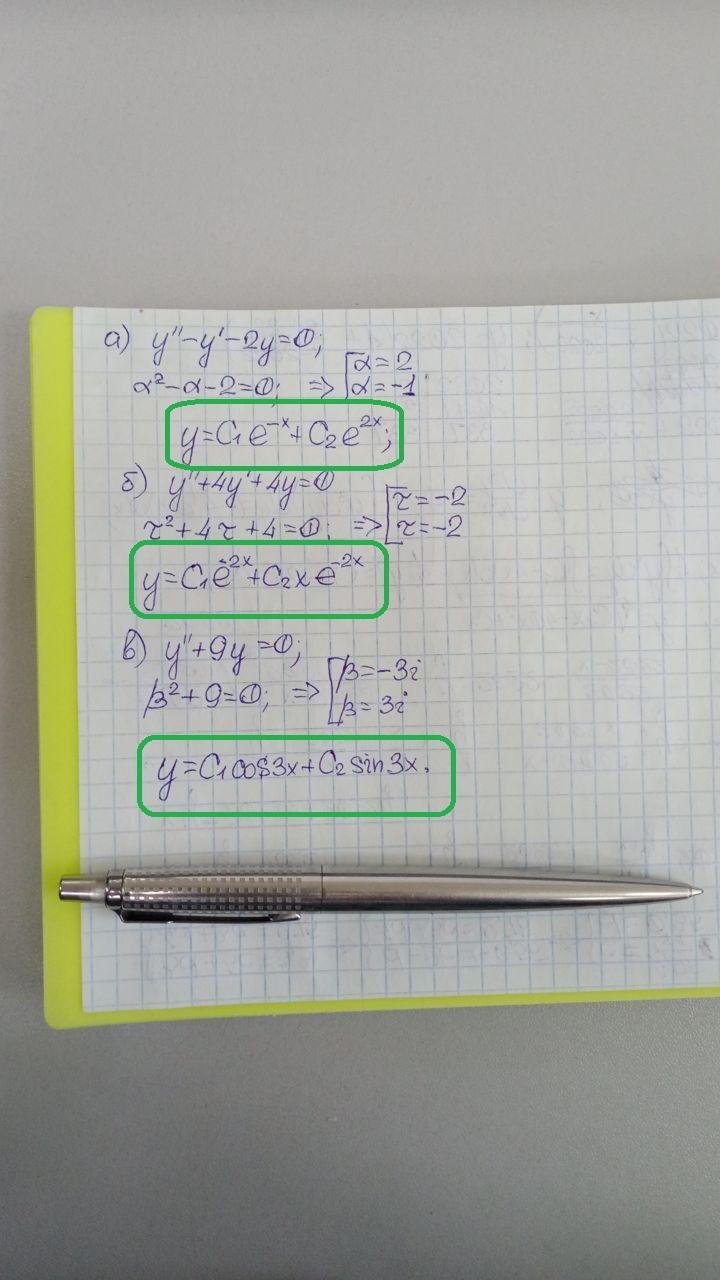 а) y''-y'-2y=0;
α²-α-2=0; => [α=2
α=-1
y=C₁e⁻ˣ+C₂e²ˣ;
б) y''+4y'+4y=0
τ²+4τ+4=0; => [τ=-2
τ=-2
y=C₁e⁻²ˣ+C₂xe⁻²ˣ
в) y''+9y=0;
β²+9=0; => [β=-3i
β=3i
y=C₁cos3x+C₂sin3x.